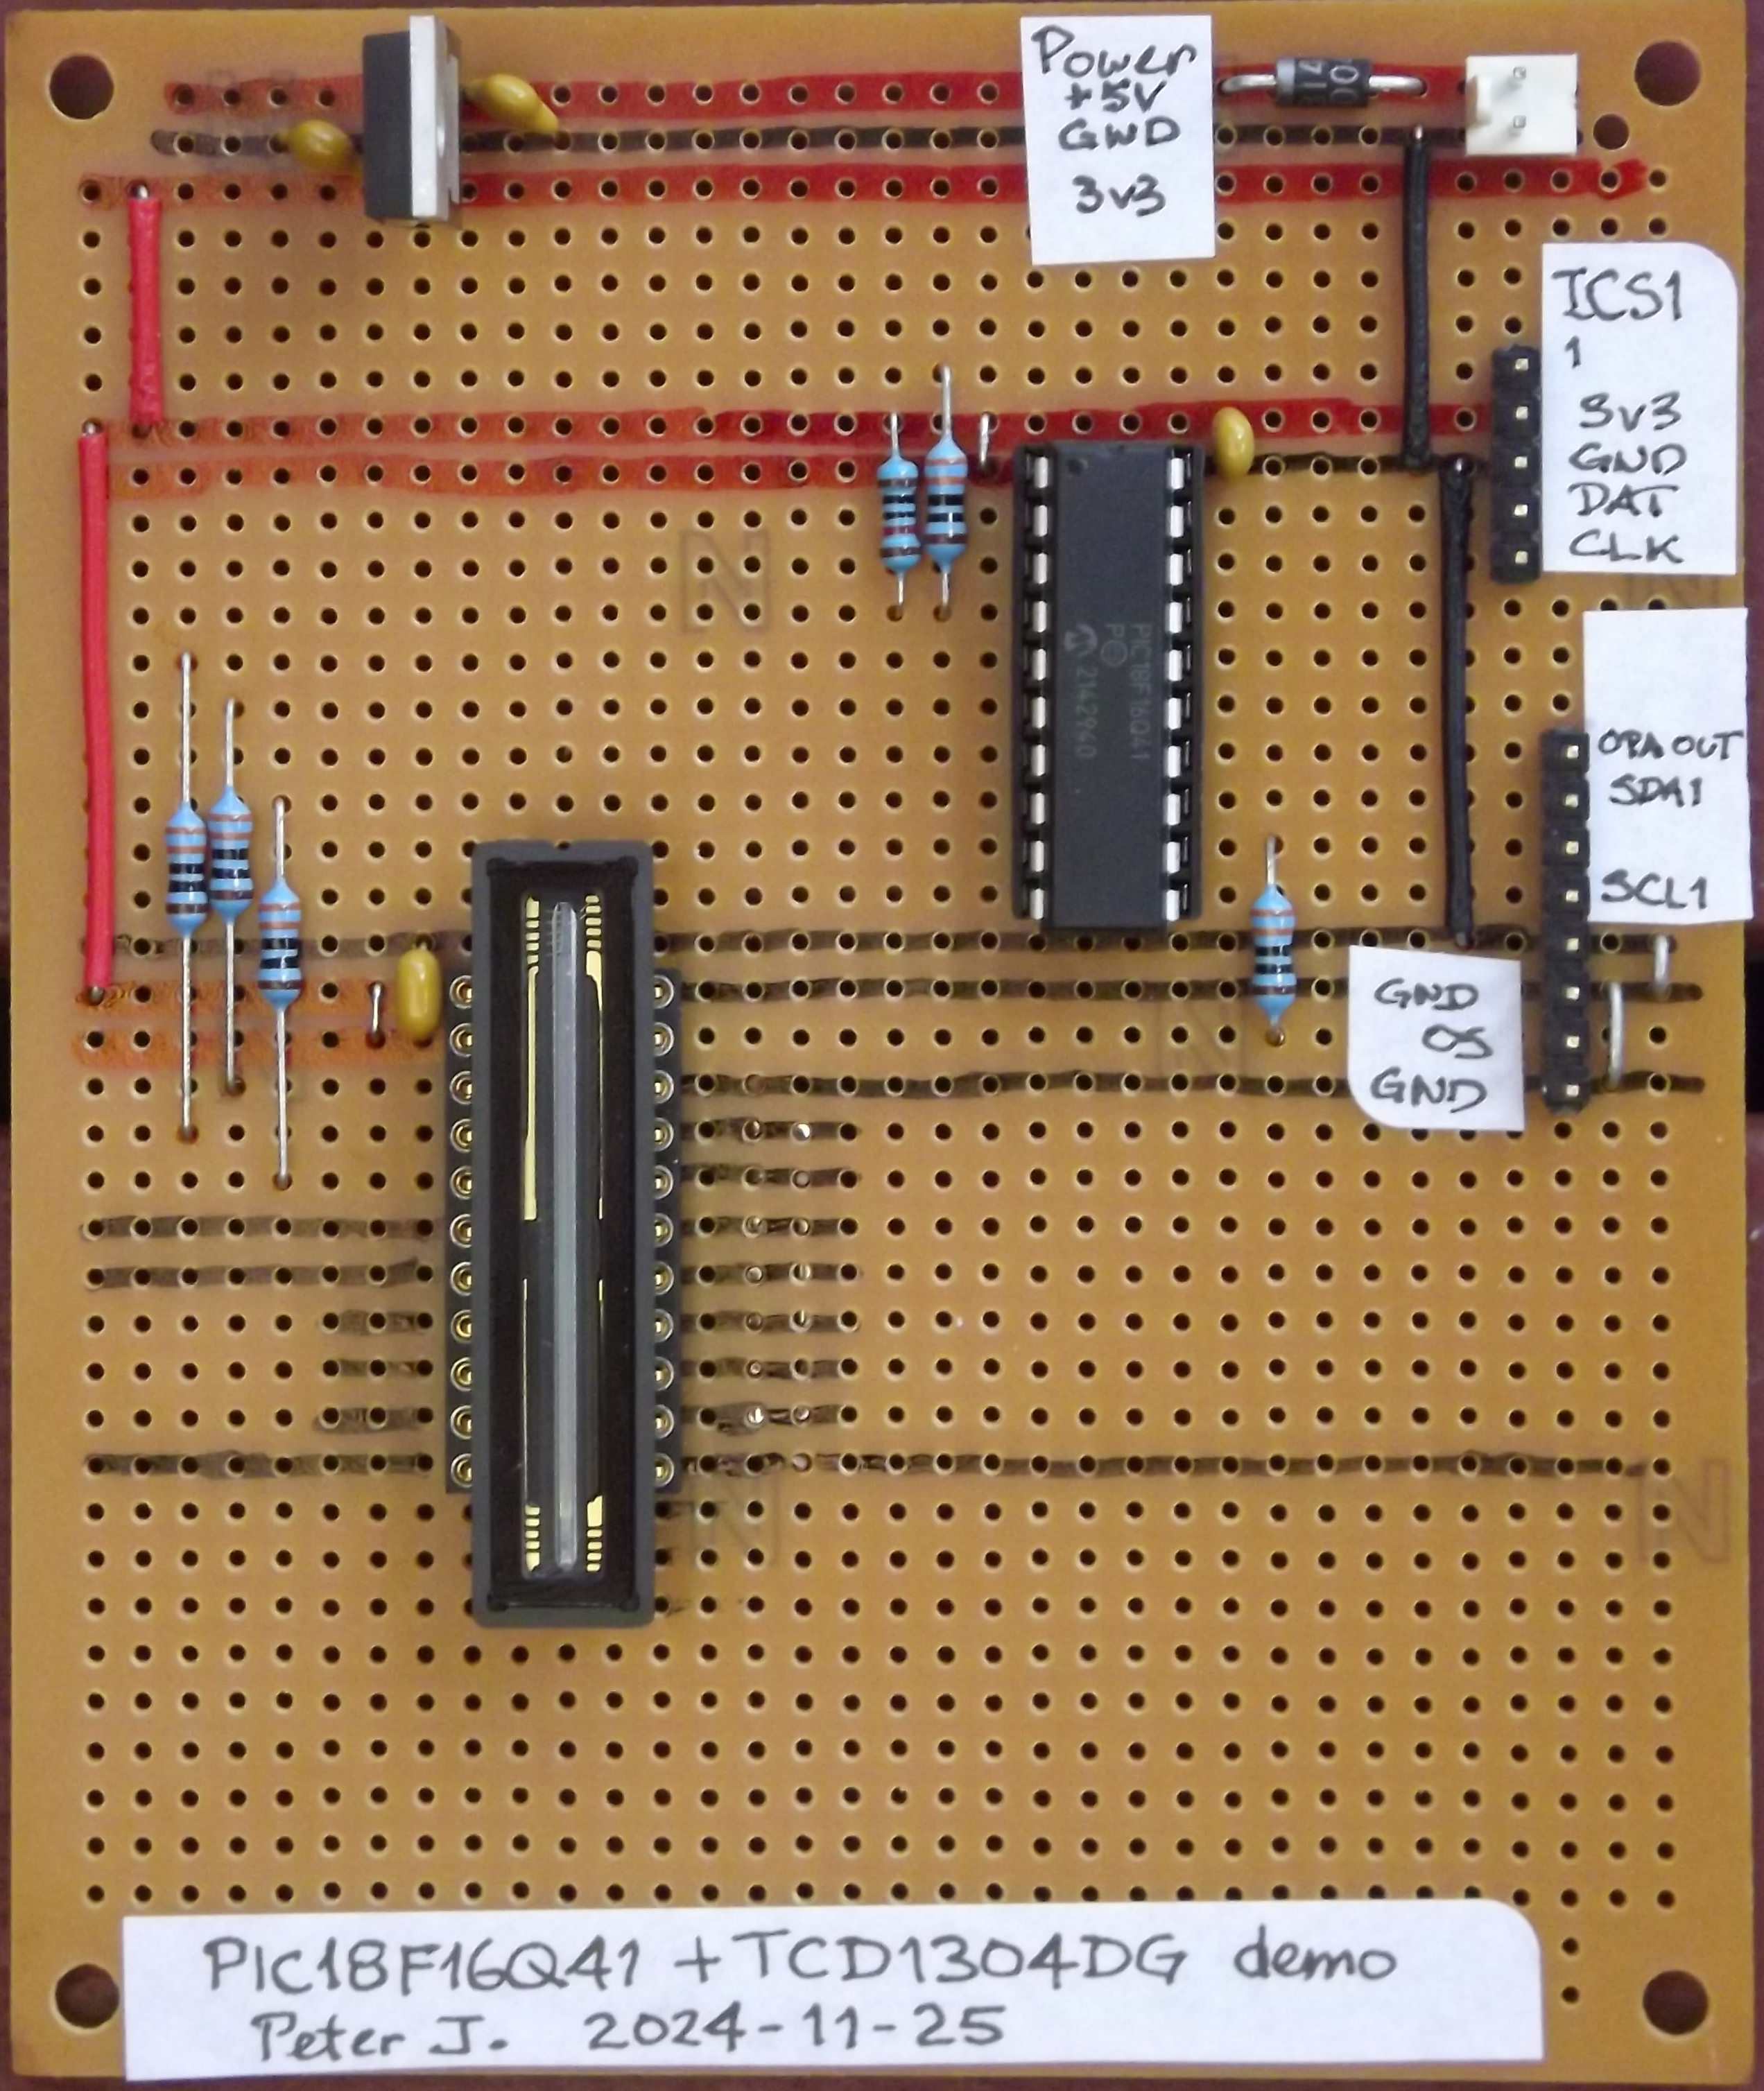 Power
+5V
GND
3v3
ICS1
1
3v3
GND
DAT
CLK
PIC18F16Q41
P
2142940
OPA OUT
SDA1
SCL1
GND
OS
GND
N
N
N
N
PIC18F16Q41 + TCD1304DG demo
Peter J. 2024-11-25